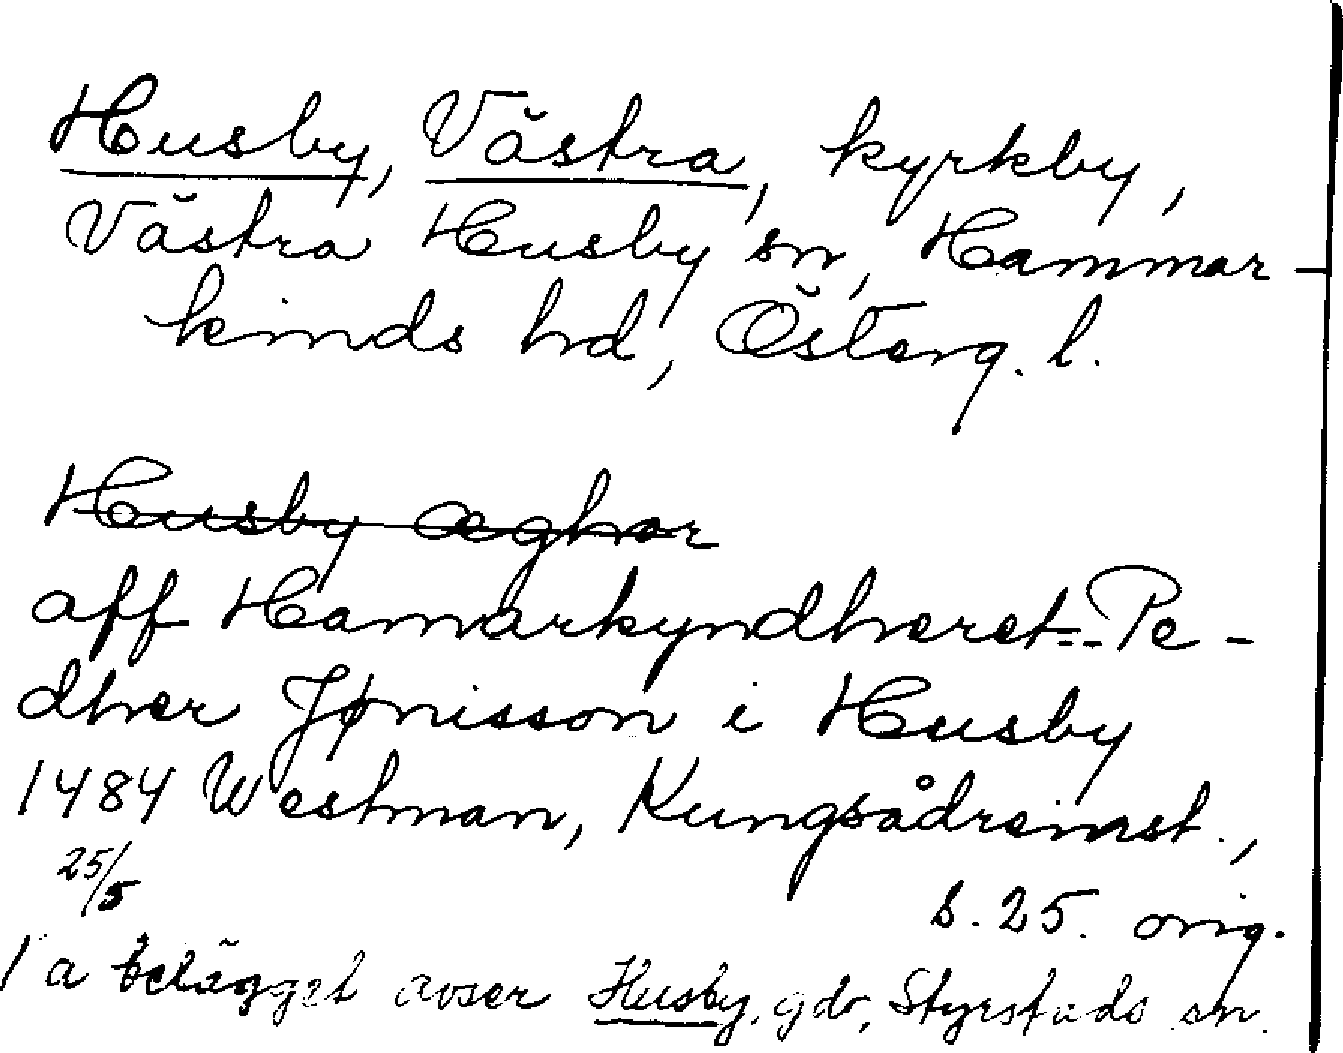 Husby, Västra, kyrkby,
Västra Husby sn, Hammar-
kinds hd, Österg. l.
Husby æghor
aff Hamarkyndhæret=-- Pe-
dher Jønisson i Husby
1484 Westman, Kungsådreinst.,
25/5
s. 25. orig.
1a belägget avser Husby, gdr, Styrstads sn.